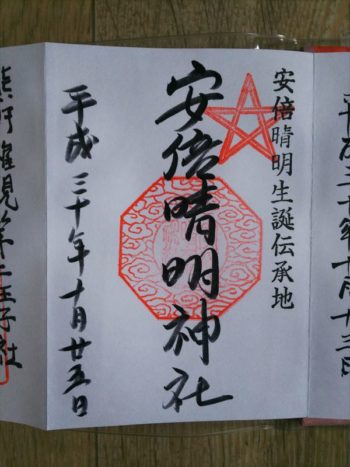 平成三十年十月十三日
安倍晴明生誕伝承地
安倍晴明神社
平成三十年十月廿五日
熊野権現第二王子社